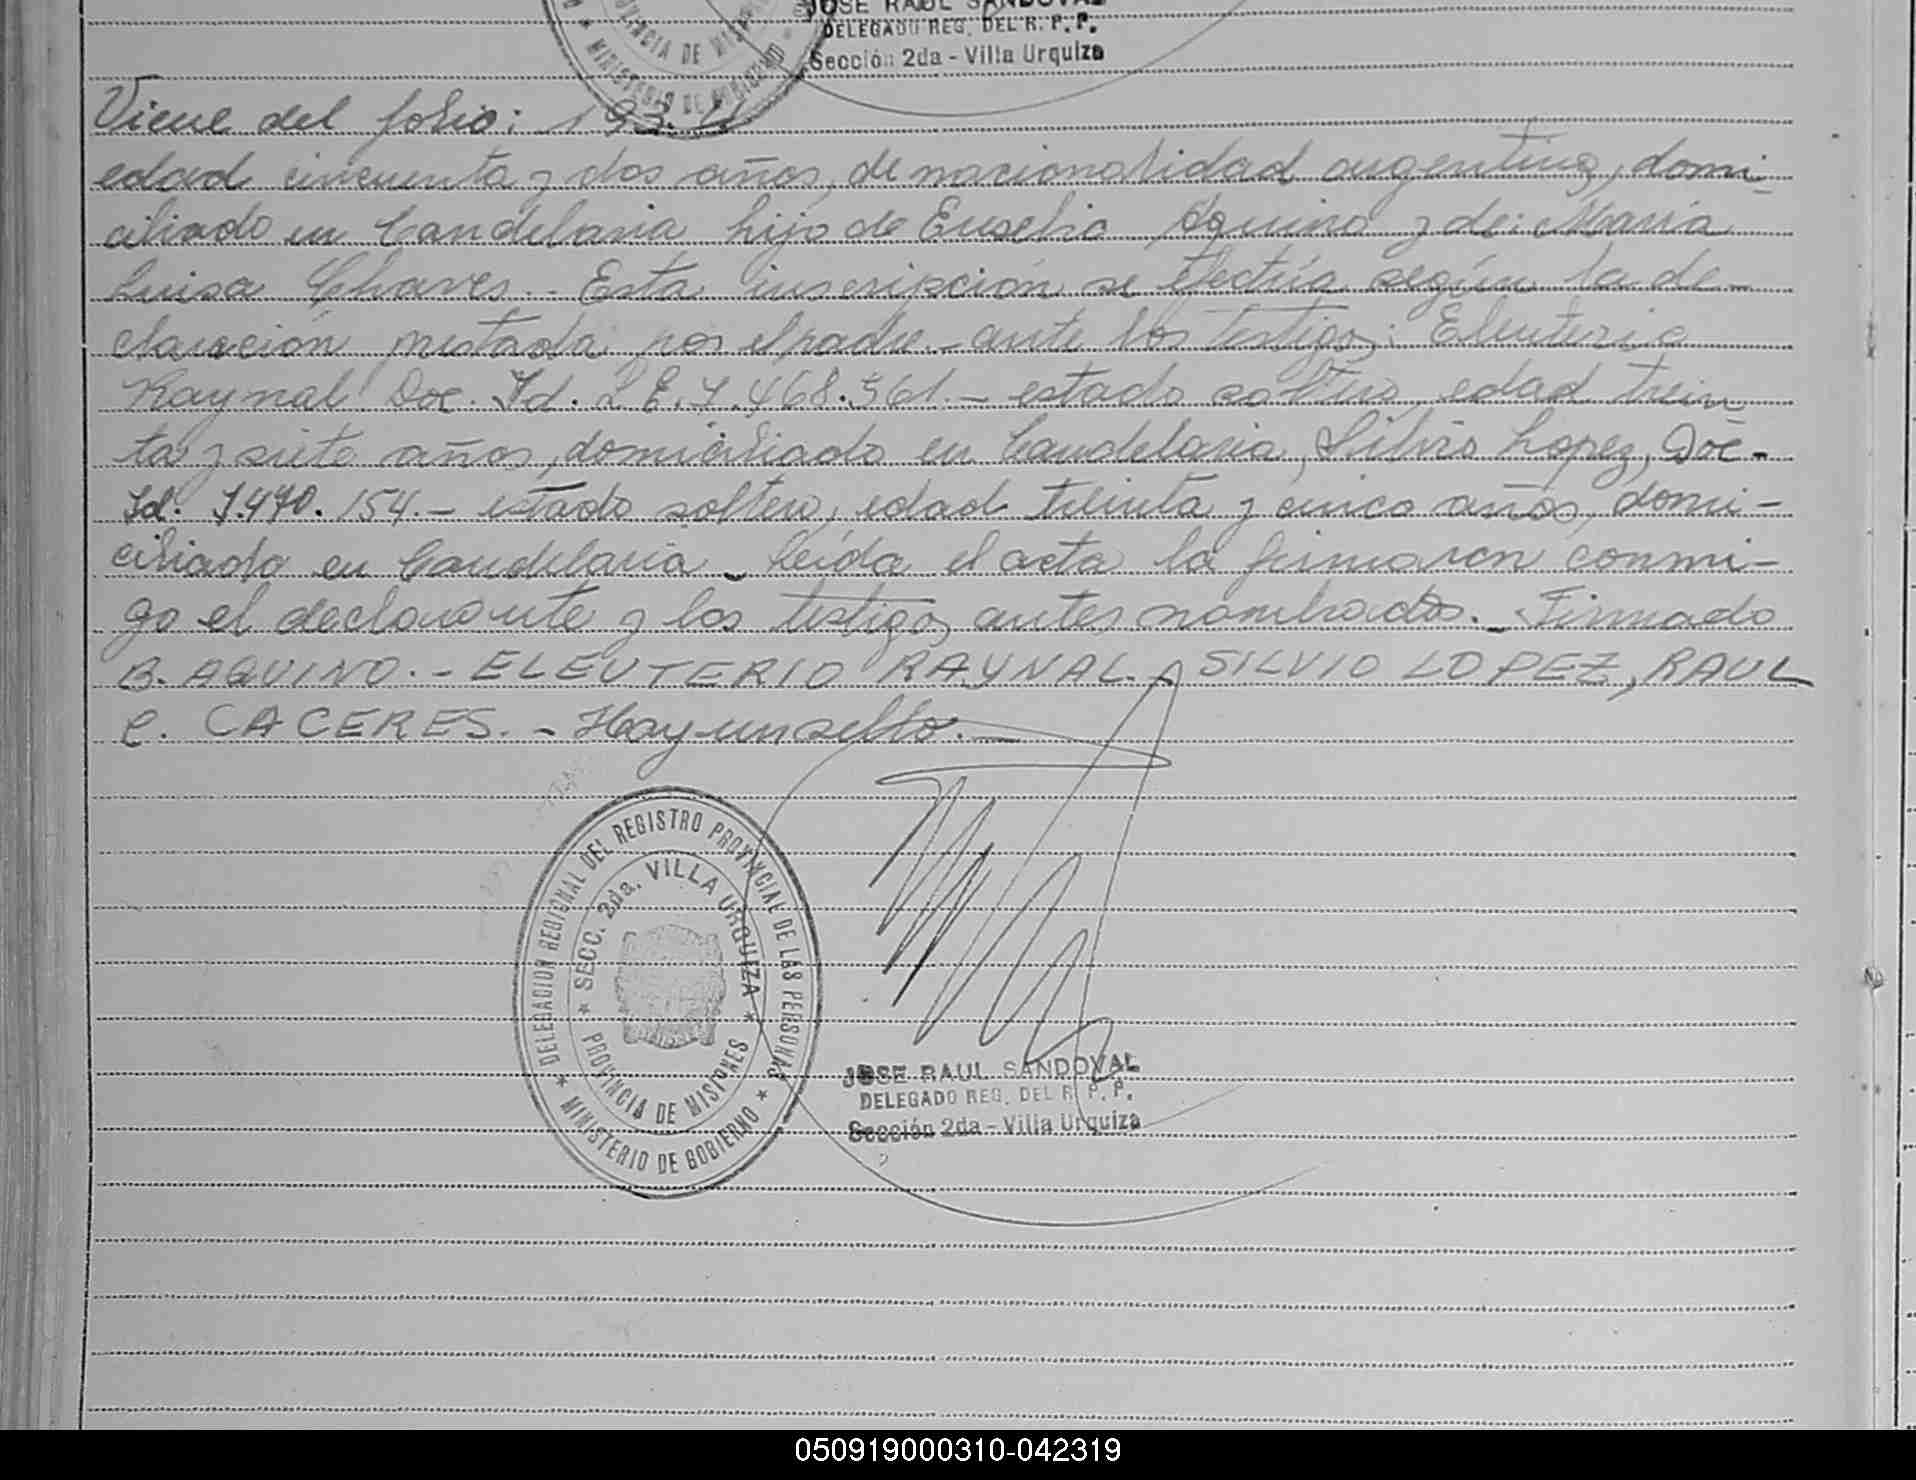 JOSE RAUL SANDOVAL
DELEGADO REG. DEL R. P. P.
Sección 2da - Villa Urquiza
PROVINCIA DE MISIONES
* MINISTERIO DE GOBIERNO *
Viene del folio: 193.-
edad cincuenta y dos años, de nacionalidad argentina, domi-
ciliado en Candelaria hijo de Eusebio Aquino y de: Maria
Luisa Chaves.- Esta inscripción se efectúa según la de-
claración prestada por el padre.- ante los testigos: Eleuterio
Raynal Doc. Id. L E. 7.468.561.- estado soltero, edad trein
ta y siete años, domiciliado en Candelaria, Silvio Lopez, Doc-
Id. 7.490.154.- estado soltero, edad treinta y cinco años, domi-
ciliado en Candelaria - Leída el acta la firmaron conmi-
go el declarante y los testigos antes nombrados.- Firmado
B. AQUINO.- ELEUTERIO RAYNAL.- SILVIO LOPEZ, RAUL
C. CACERES.- Hay un sello.-
* DELEGACION REGIONAL DEL REGISTRO PROVINCIAL DE LAS PERSONAS *
* SECC. 2da. VILLA URQUIZA *
PROVINCIA DE MISIONES
MINISTERIO DE GOBIERNO
JOSE RAUL SANDOVAL
DELEGADO REG. DEL R. P. P.
Sección 2da - Villa Urquiza
050919000310-042319